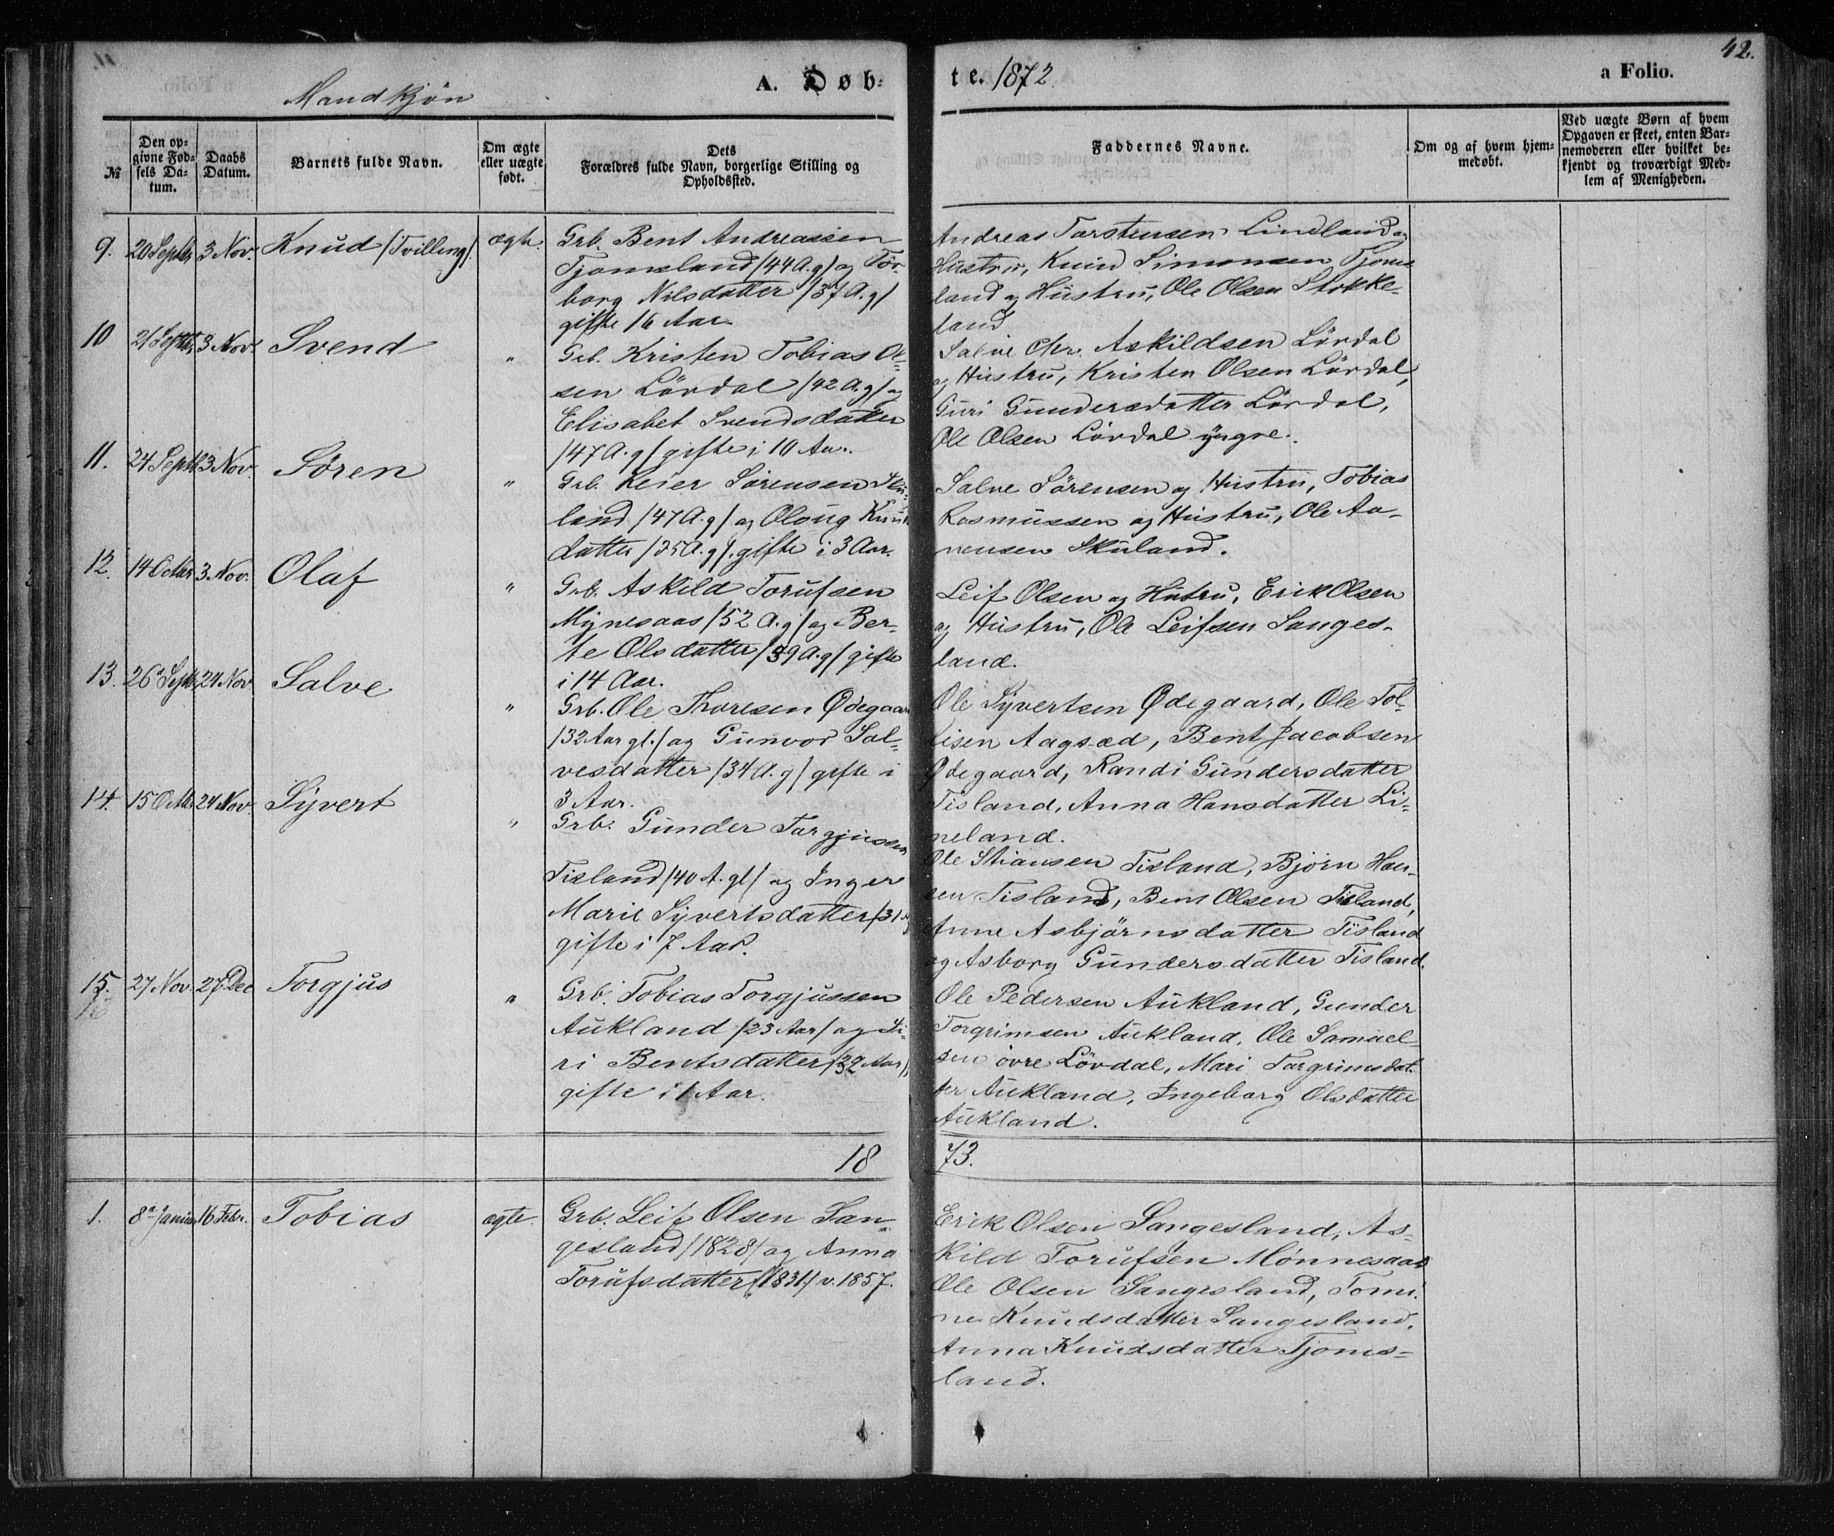 42.
Mandkjøn
A. Døb-
te. 1872
a Folio.
№
Den op-
givne Fød-
sels Da-
tum.
Daabs
Datum.
Barnets fulde Navn.
Om ægte
eller uægte
født.
Dets
Forældres fulde Navn, borgerlige Stilling og
Opholdssted.
Faddernes Navne.
Om og af hvem hjem-
medøbt.
Ved uægte Børn af hvem
Opgaven er skeet, enten Bar-
nemoderen eller hvilket be-
kjendt og troværdigt Med-
lem af Menigheden.
9. 20 Septbr 3 Nov. Knud /Tvilling/. ægte.
Grb. Bent Andreassen
Tjomsland /44 A.g/ og Tor-
borg Nilsdatter /37 A.g/
gifte 16 Aar.
Andreas Torstensen Lindland og
Hustru, Knud Simonsen Tjoms-
land og Hustru, Ole Olsen Stokke-
land
10 21 Septbr 3 Nov. Svend "
Grb. Kristen Tobias Ol-
sen Lövdal /42 A.g/ og
Elisabet Svendsdatter
/47 A.g/ gifte i 10 Aar.
Salve Chr. Askildsen Lövdal
og Hustru, Kristen Olsen Lövdal,
Guri Gundersdatter Lövdal,
Ole Olsen Lövdal yngre.
11. 24 Septb 3 Nov. Sören "
Grb. Reier Sörensen Sku-
land /47 A.g/ og Oloug Knuds
datter /35 A.g/. gifte i 3 Aar.
Salve Sörensen og Hustru, Tobias
Rasmussen og Hustru, Ole Aa-
nensen Skuland.
12. 14 Octbr 3 Nov. Olaf "
Grb. Askild Torufsen
Mynesaas /52 A.g/ og Ber-
te Olsdatter /39 A.g/ gifte
i 14 Aar.
Leif Olsen og Hustru, Erik Olsen
og Hustru, Ole Leifsen Sanges-
land.
13. 26 Septbr 24 Nov Salve "
Grb. Ole Thoresen Ødegaard
/32 Aar gl./ og Gunvor Sal-
vesdatter /34 A.g/ gifte i
3 Aar.
Ole Syvertsen Ødegaard, Ole Tol-
lisen Aagsæd, Bent Jacobsen
Ødegaard, Randi Gundersdatter
Tisland, Anna Hansdatter Li-
neland.
14. 15 Octbr 24 Nov. Syvert "
Grb. Gunder Torgjussen
Tisland /40 A. gl/ og Inger
Marie Syvertsdatter /31 A
gifte i 7 Aar.
Ole Stiansen Tisland, Björn Han-
sen Tisland, Bent Olsen Tisland,
Anne Asbjörnsdatter Tisland
og Asborg Gundersdatter Tisland.
15. 27 Nov. 27 Dec Torgjus "
Grb. Tobias Torgjussen
Aukland /23 Aar/ og Si-
ri Bentsdatter /32 Aar/,
gifte i 1 Aar.
Ole Pedersen Aukland, Gunder
Torgrimsen Aukland, Ole Samuel-
sen övre Lövdal, Mari Torgrimsdat-
ter Aukland, Ingeborg Olsdatter
Aukland.
18 73.
1. 8de Januar 16 Febr. Tobias ægte.
Grb. Leif Olsen San-
gesland /1828/ og Anna
Torufsdatter /1831/ v. 1857.
Erik Olsen Sangesland, As-
kild Torufsen Mönnesaas
Ole Olsen Sangesland, Tomi-
ne Knudsdatter Sangesland,
Anna Knudsdatter Tjoms-
land.